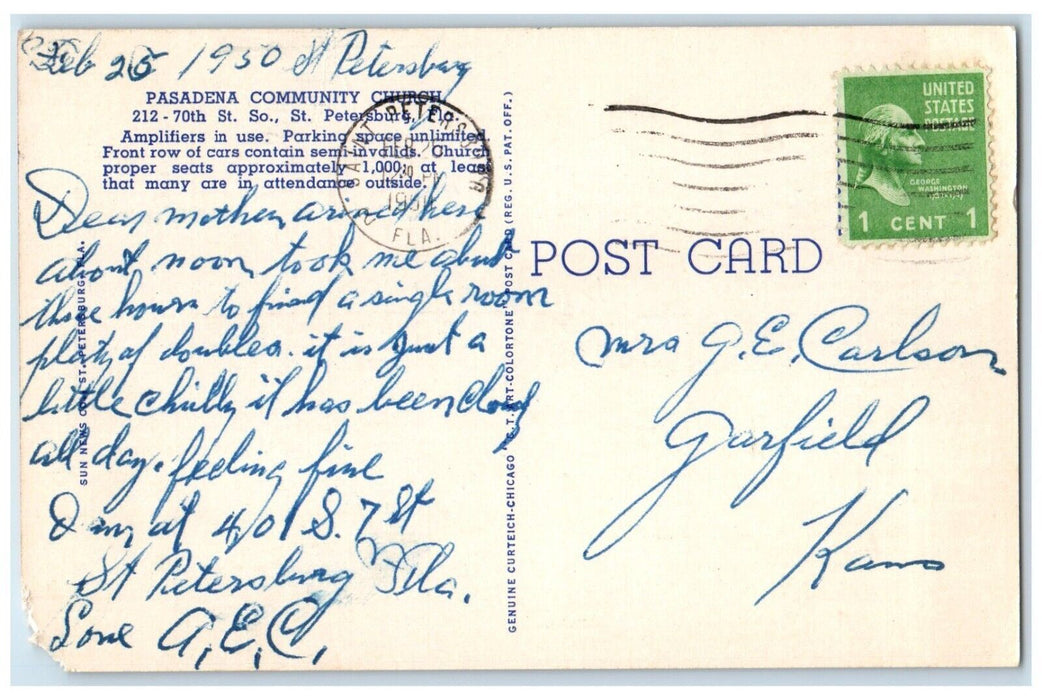 Feb 25 1950 St Petersburg
PASADENA COMMUNITY CHURCH
212 - 70th St. So., St. Petersburg, Fla.
Amplifiers in use. Parking space unlimited.
Front row of cars contain semi-invalids. Church
proper seats approximately 1,000; at least
that many are in attendance outside.
Dear mother, arrived here
about noon, took me about
three hours to find a single room
plenty of doubles. it is just a
little chilly it has been cloudy
all day. feeling fine
I am at 401 S. 7 St
St Petersburg Fla.
Love A.E.C.
SUN NEWS CO., ST. PETERSBURG, FLA.
GENUINE CURTEICH-CHICAGO "C.T. ART-COLORTONE" POST CARD (REG. U.S. PAT. OFF.)
SAINT PETERSBURG
FEB 26
1950
FLA.
POST CARD
UNITED
STATES
POSTAGE
GEORGE
WASHINGTON
1 CENT 1
Mrs G.E. Carlson
Garfield
Kans